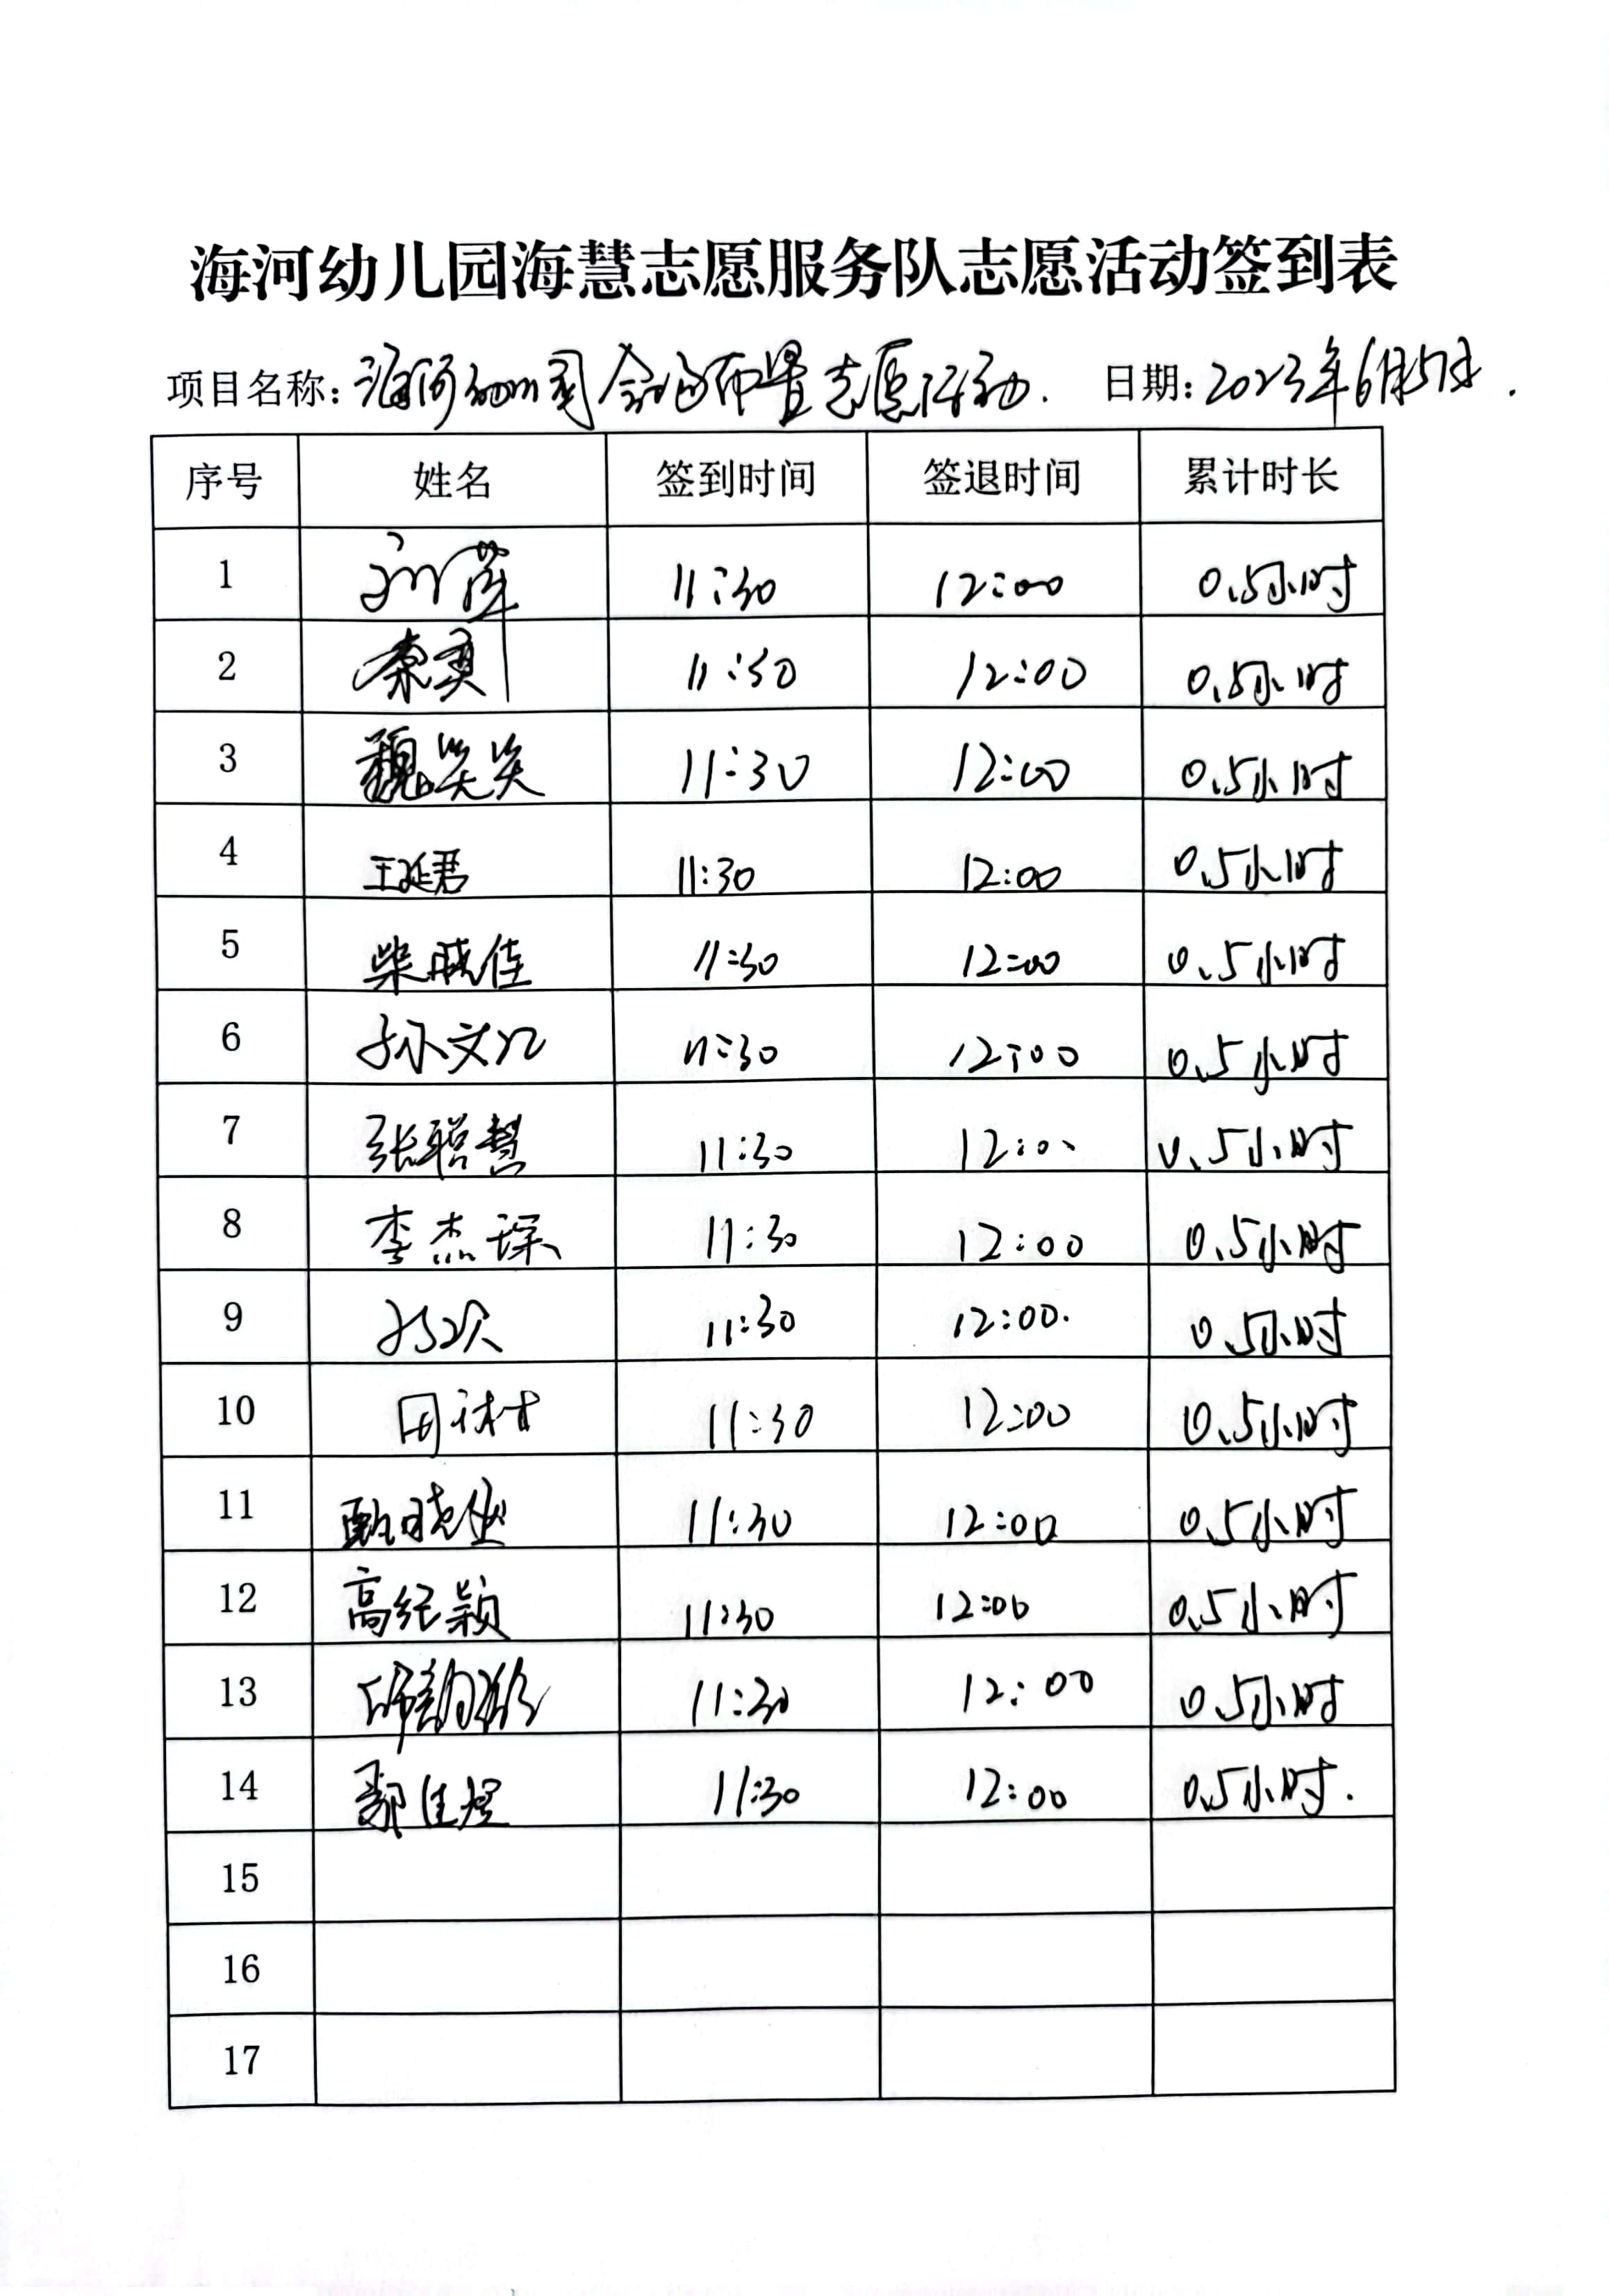 海河幼儿园海慧志愿服务队志愿活动签到表
项目名称：海河幼儿园会场布置志愿活动． 日期：2023年6月5日．
序号 姓名 签到时间 签退时间 累计时长
1 刘萍 11:30 12:00 0.5小时
2 11:30 12:00 0.5小时
3 魏笑笑 11:30 12:00 0.5小时
4 王延君 11:30 12:00 0.5小时
5 柴晓佳 11:30 12:00 0.5小时
6 孙文 11:30 12:00 0.5小时
7 张聪慧 11:30 12:00 0.5小时
8 李杰琛 11:30 12:00 0.5小时
9 11:30 12:00. 0.5小时
10 田 11:30 12:00 0.5小时
11 甄晓 11:30 12:00 0.5小时
12 高纪颖 11:30 12:00 0.5小时
13 11:30 12:00 0.5小时
14 鄢佳煜 11:30 12:00 0.5小时.
15
16
17